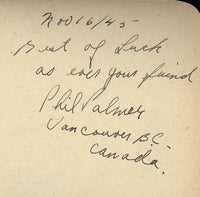 Nov 16/45
Best of Luck
as ever your friend
Phil Palmer
Vancouver B.C.
Canada.